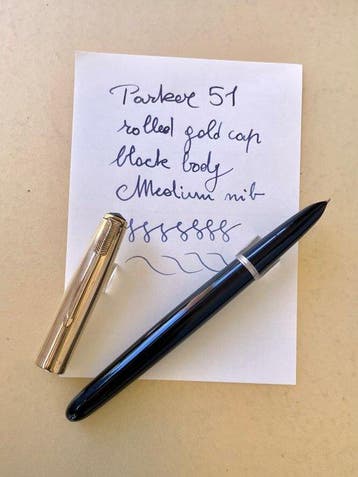 Parker 51
rolled gold cap
black body
Medium nib